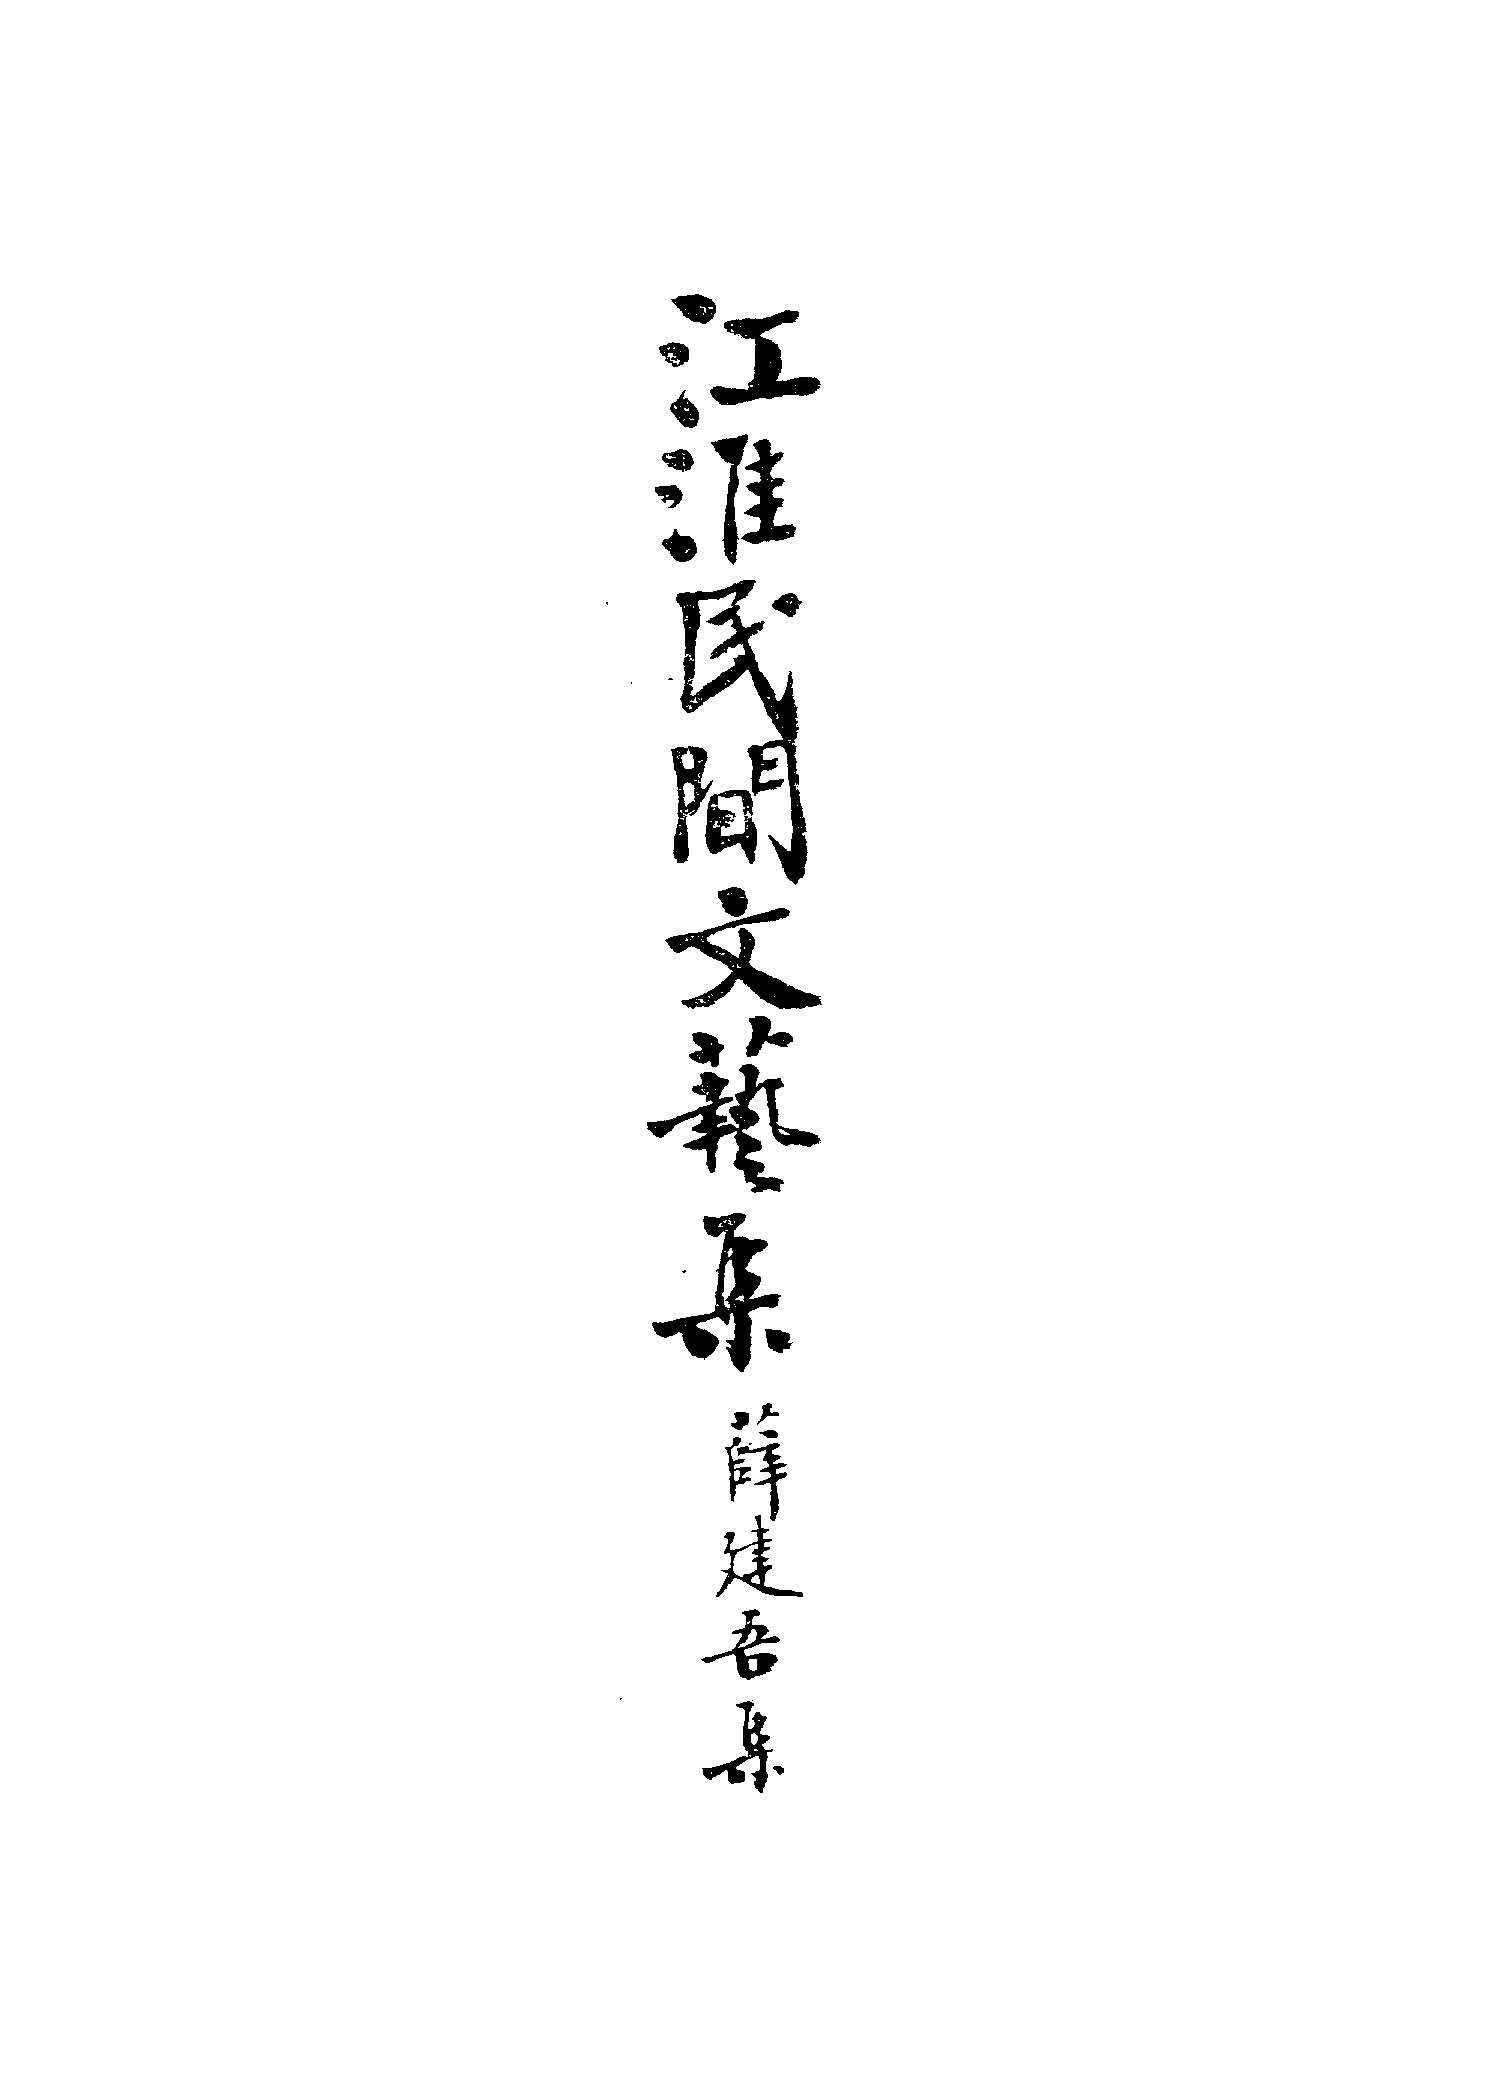 江淮民間文藝集
薛建吾集